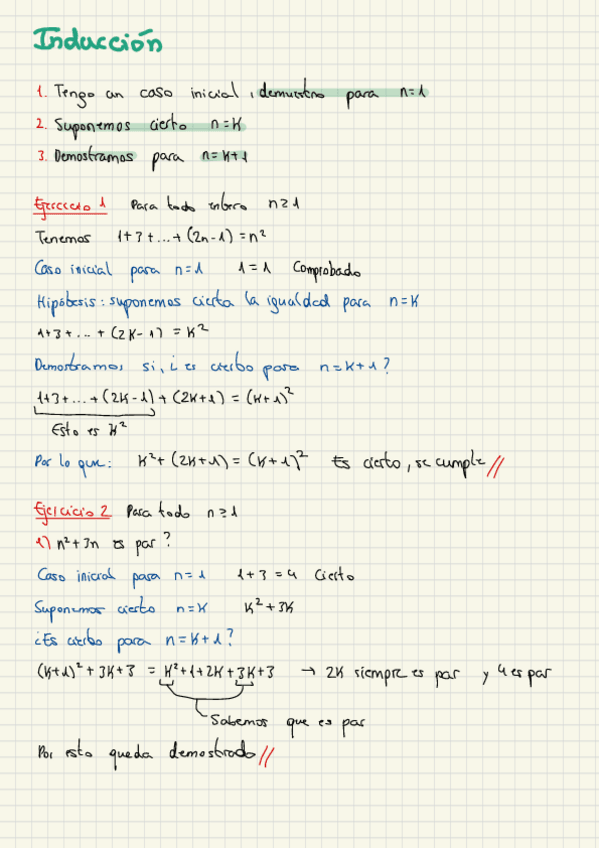 Inducción
1. Tengo un caso inicial, demuestro para n=1
2. Suponemos cierto n=K
3. Demostramos para n=K+1
Ejercicio 1 Para todo entero n≥1
Tenemos 1+3+...+(2n-1)=n²
Caso inicial para n=1 1=1 Comprobado
Hipótesis: suponemos cierta la igualdad para n=K
1+3+...+(2K-1)=K²
Demostramos si, ¿es cierto para n=K+1?
1+3+...+(2K-1)+(2K+1)=(K+1)²
Esto es K²
Por lo que: K²+(2K+1)=(K+1)² Es cierto, se cumple//
Ejercicio 2 Para todo n≥1
1) n²+3n es par?
Caso inicial para n=1 1+3=4 Cierto
Suponemos cierto n=K K²+3K
¿Es cierto para n=K+1?
(K+1)²+3K+3 = K²+1+2K+3K+3 → 2K siempre es par y 4 es par
Sabemos que es par
Por esto queda demostrado//